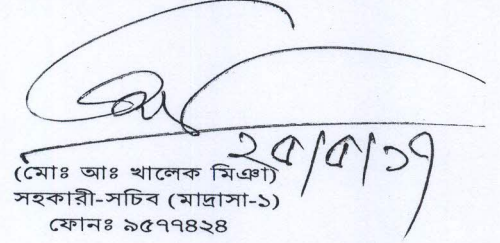 ২৫/৫/১৭
(মোঃ আঃ খালেক মিঞা)
সহকারী-সচিব (মাদ্রাসা-১)
ফোনঃ ৯৫৭৭৪২৪